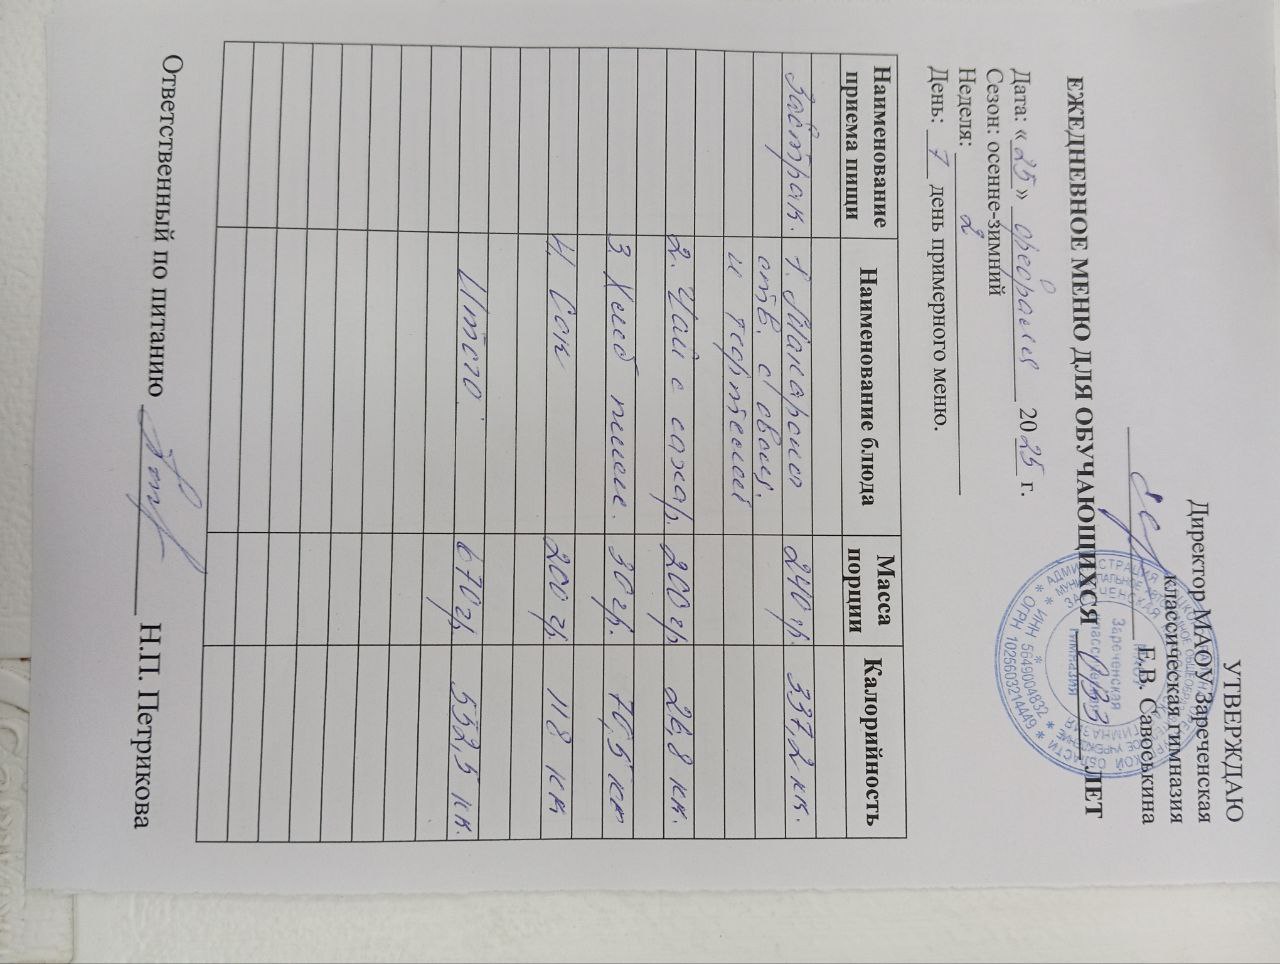 УТВЕРЖДАЮ
Директор МАОУ Зареченская
классическая гимназия
Е.В. Савоськина
ЕЖЕДНЕВНОЕ МЕНЮ ДЛЯ ОБУЧАЮЩИХСЯ ОВЗ ЛЕТ
Дата: «25» февраля 2025 г.
Сезон: осенне-зимний
Неделя: 2
День: 7 день примерного меню.
Наименование приема пищи Наименование блюда Масса порции Калорийность
Завтрак. 1. Макароны 240 гр. 337,2 кк.
отв. с овощ.
и тефтелей
2. Чай с сахар. 200 гр 26,8 кк.
3. Хлеб пшен. 30 гр. 70,5 кк
4. Сок 200 гр. 118 кк
Итого: 670 гр 552,5 кк.
Ответственный по питанию Н.П. Петрикова
ИНН 5649004832
ОГРН 1025603214449
Зареченская
гимназия